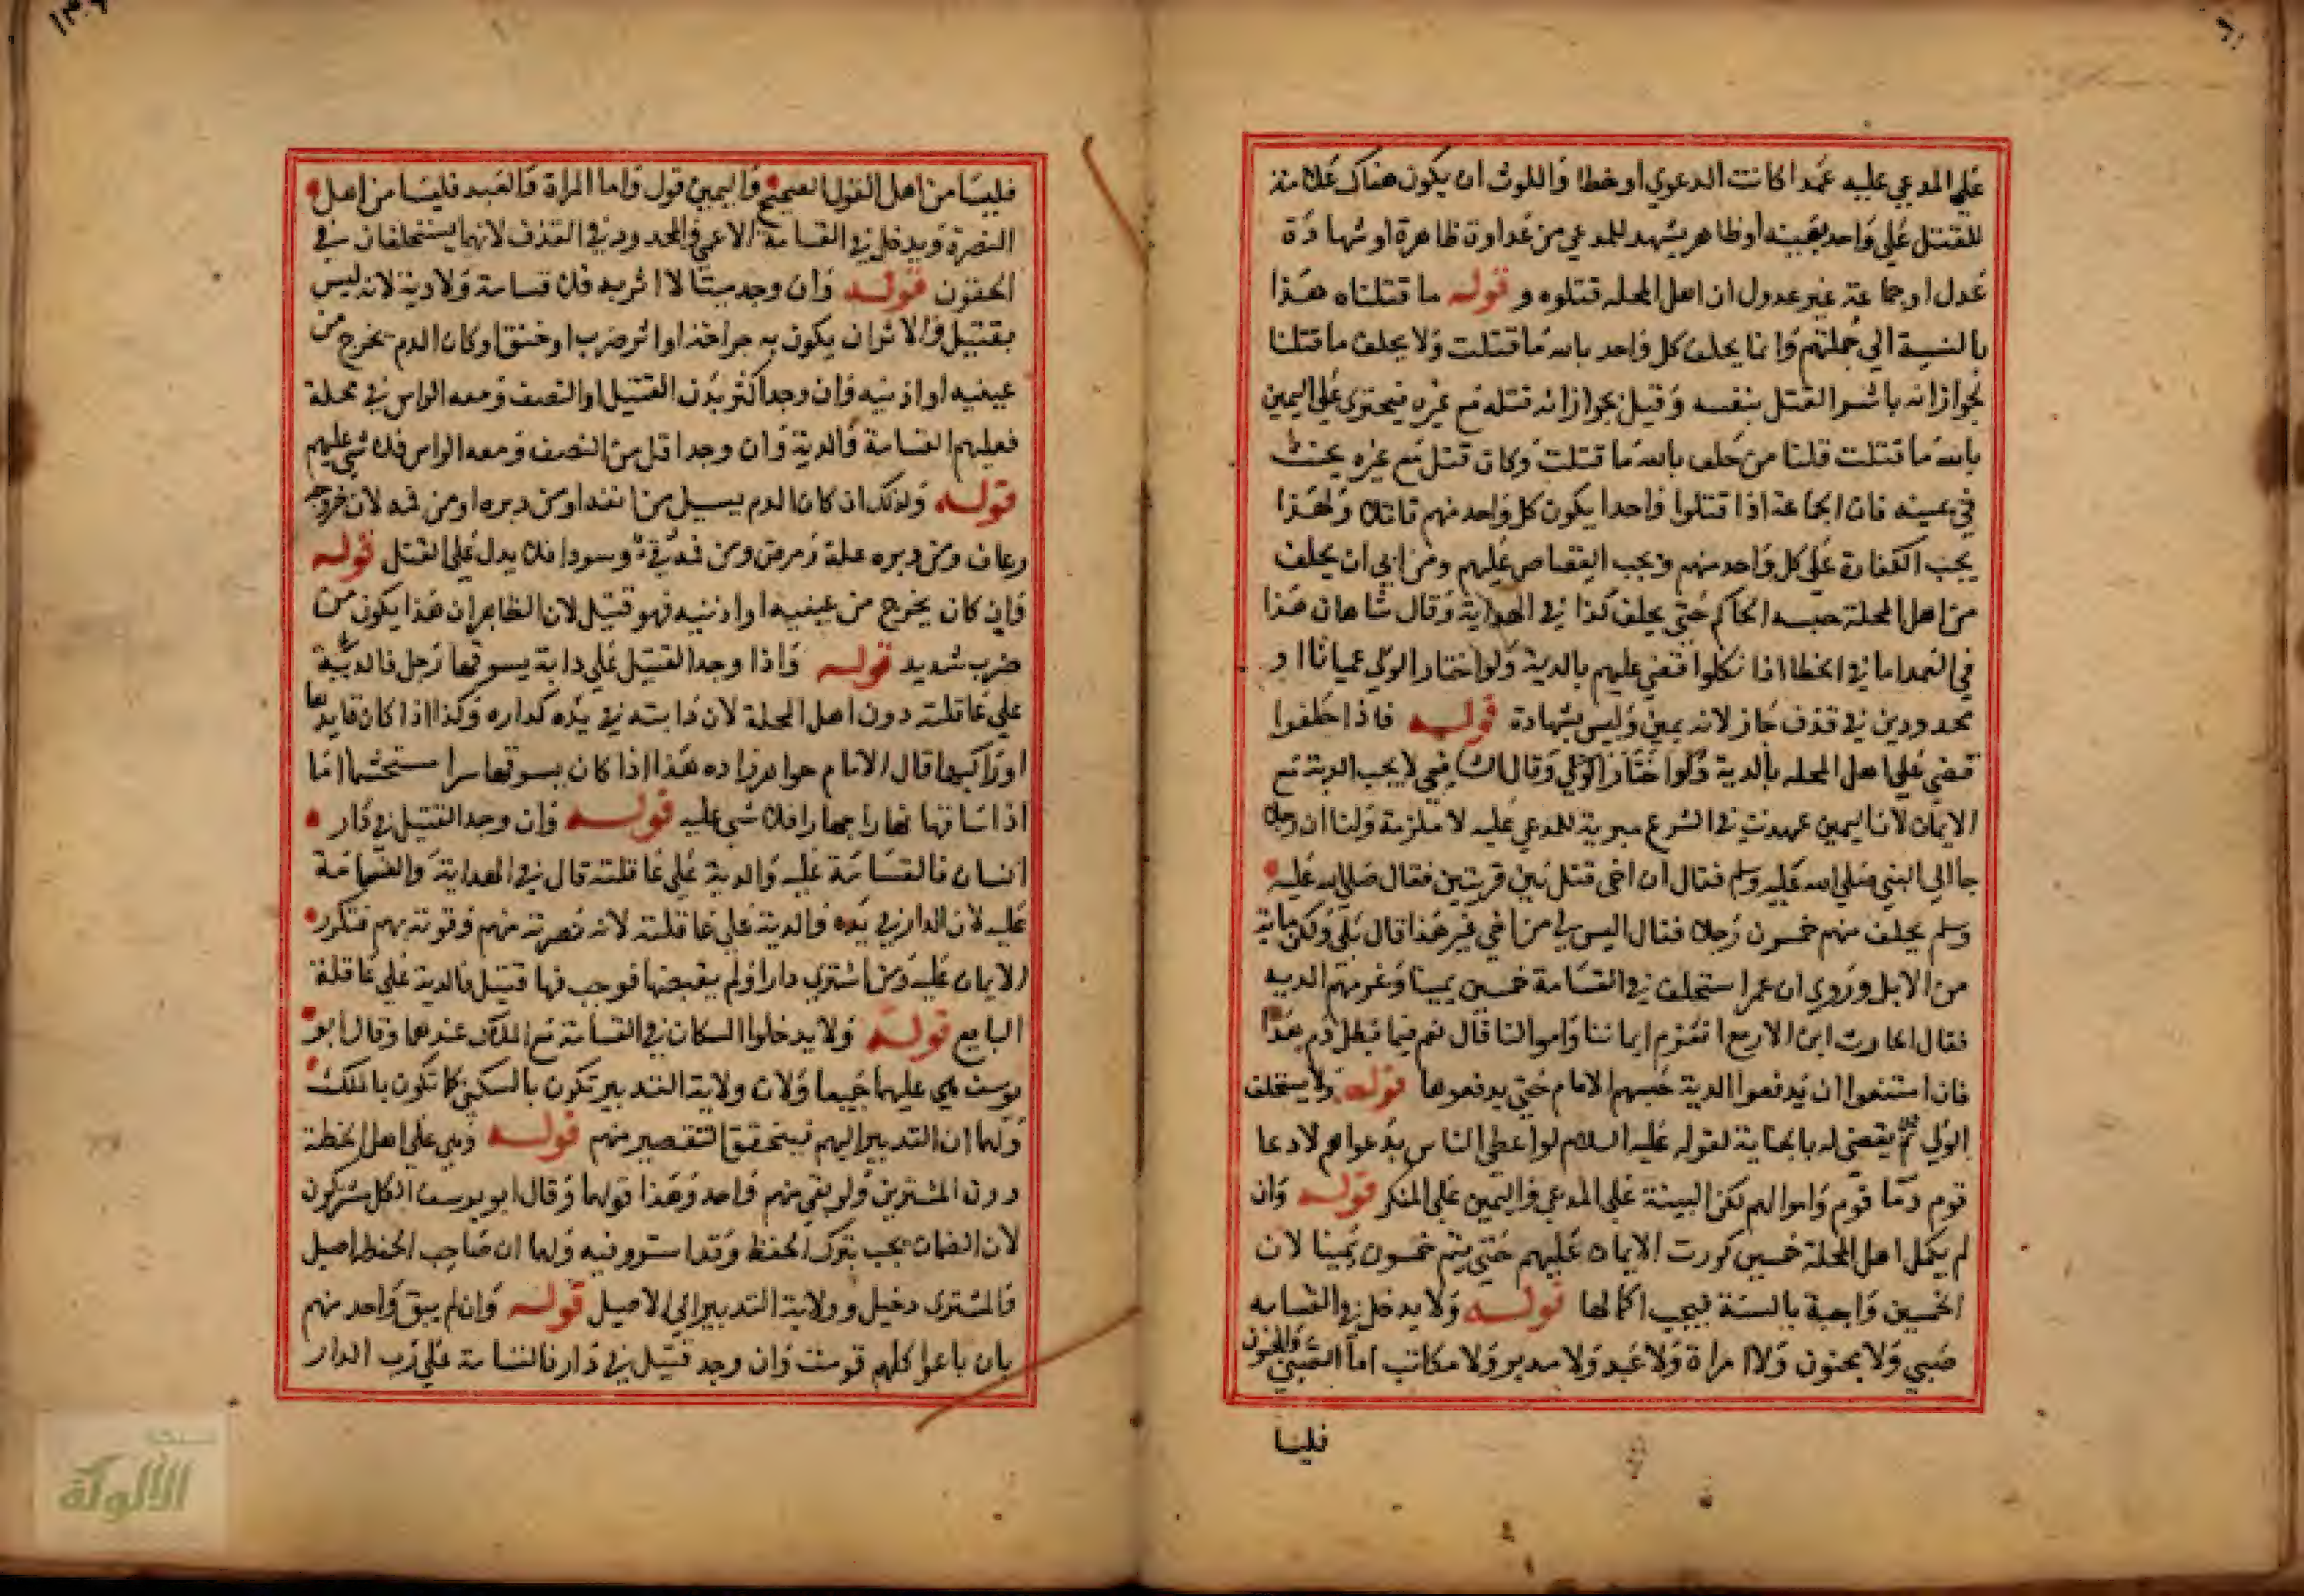 علي المدعي عليه عمدا كانت الدعوي او خطا واللوث ان يكون هناك علامة
للقتل علي واحد بعينه او ظاهر يشهد للمدعي من عداوة ظاهرة او شهادة
عدل او جماعة غير عدول ان اهل المحله قتلوه و قوله ما قتلناه هذا
بالنسبة الي جملتهم وانما يحلف كل واحد بالله ما قتلت ولا يحلف ما قتلنا
لجواز انه باشر القتل بنفسه وقيل لجواز انه قتله مع غيره فيجتري علي اليمين
بالله ما قتلت قلنا من حلف بالله ما قتلت وكان قتل مع غيره يحنث
في يمينه فان الجماعة اذا قتلوا واحدا يكون كل واحد منهم قاتلا ولهذا
يجب الكفارة علي كل واحد منهم ويجب القصاص عليهم ومن ابي ان يحلف
من اهل المحلة حبسه الحاكم حتي يحلف كذا في الهداية وقال شاهان هذا
في العمد اما في الخطا اذا نكلوا قضي عليهم بالدية ولو اختار الولي عميانا او
محدودين في قذف جاز لانه يمين وليس بشهادة قوله فاذا حلفوا
قضي علي اهل المحله بالدية ولو اختار الولي وقال الشافعي لا يجب الدية مع
الايمان لان اليمين عهدت في الشرع مبرية للمدعي عليه لا ملزمة ولنا ان رجلا
جا الي النبي صلي الله عليه وسلم فقال ان اخي قتل بين قريتين فقال صلي الله عليه
وسلم يحلف منهم خمسون رجلا فقال اليس لي من اخي غير هذا قال بلي ولك مايه
من الابل وروي ان عمر استحلف في القسامة خمسين يمينا وغرمهم الديه
فقال الحارث ابن الازمع انغرم ايماننا واموالنا قال نعم فيما يبطل دم هذا
فان امتنعوا ان يدفعوا الدية حبسهم الامام حتي يدفعوها قوله ولا يستحلف
الولي ثم يقضي له بالجناية لقوله عليه السلام لو اعطي الناس بدعواهم لادعا
قوم دما قوم واموالهم لكن البينة علي المدعي واليمين علي المنكر قوله وان
لم يكمل اهل المحلة خمسين كررت الايمان عليهم حتي يتم خمسون يمينا لان
الخمسين واجبة بالسنة فيجب اكمالها قوله ولا يدخل في القسامه
صبي ولا مجنون ولا امراة ولا عبد ولا مدبر ولا مكاتب اما الصبي والمجنون
فليسا
فليسا من اهل القول الصحيح واليمين قول واما المراة والعبد فليسا من اهل
النصرة ويدخل في القسامة الاعمي والمحدود في القذف لانهما يستحلفان في
الحقوق قوله وان وجد ميتا لا اثر به فلا قسامة ولا دية لانه ليس
بقتيل والاثر ان يكون به جراحة او اثر ضرب او خنق او كان الدم يخرج من
عينيه او اذنيه وان وجد اكثر بدن القتيل او النصف ومعه الراس في محلة
فعليهم القسامة والدية وان وجد اقل من النصف ومعه الراس فلا شي عليهم
قوله وكذلك ان كان الدم يسيل من انفه او من دبره او من فمه لان خروجه
رعاف ومن دبره علة ومرض ومن فمه قي وسودا فلا يدل علي القتل قوله
وان كان يخرج من عينيه او اذنيه فهو قتيل لان الظاهر ان هذا يكون من
ضرب شديد قوله واذا وجد القتيل علي دابة يسوقها رجل فالدية
علي عاقلته دون اهل المحلة لان دابته في يده كداره وكذا اذا كان قايدها
او راكبها قال الامام خواهرزاده هذا اذا كان يسوقها سرا مستحشما اما
اذا ساقها نهارا جهارا فلا شي عليه قوله وان وجد القتيل في دار
انسان فالقسامة عليه والدية علي عاقلته قال في الهداية والقسامة
عليه لان الدار في يده والدية علي عاقلته لانه نصرته منهم وقوته بهم فتكرر
الايمان عليه ومن اشتري دارا ولم يقبضها فوجب فيها قتيل فالدية علي عاقلة
البايع قوله ولا يدخلوا السكان في القسامة مع الملاك عندهما وقال ابو
يوسف هي عليهما جميعا ولان ولاية التدبير تكون بالسكني كما تكون بالملك
ولهما ان التدبير اليهم فيتحقق التقصير منهم قوله وهي علي اهل الخطة
دون المشترين ولو بقي منهم واحد وهذا قولهما وقال ابو يوسف الكل مشتركون
لان الضمان يجب بترك الحفظ وقد استووا فيه ولهما ان صاحب الحفظ اصيل
والمشتري دخيل وولاية التدبير الي الاصيل قوله وان لم يبق واحد منهم
بان باعوا كلهم قومت وان وجد قتيل في دار فالقسامة علي رب الدار
الألوكة